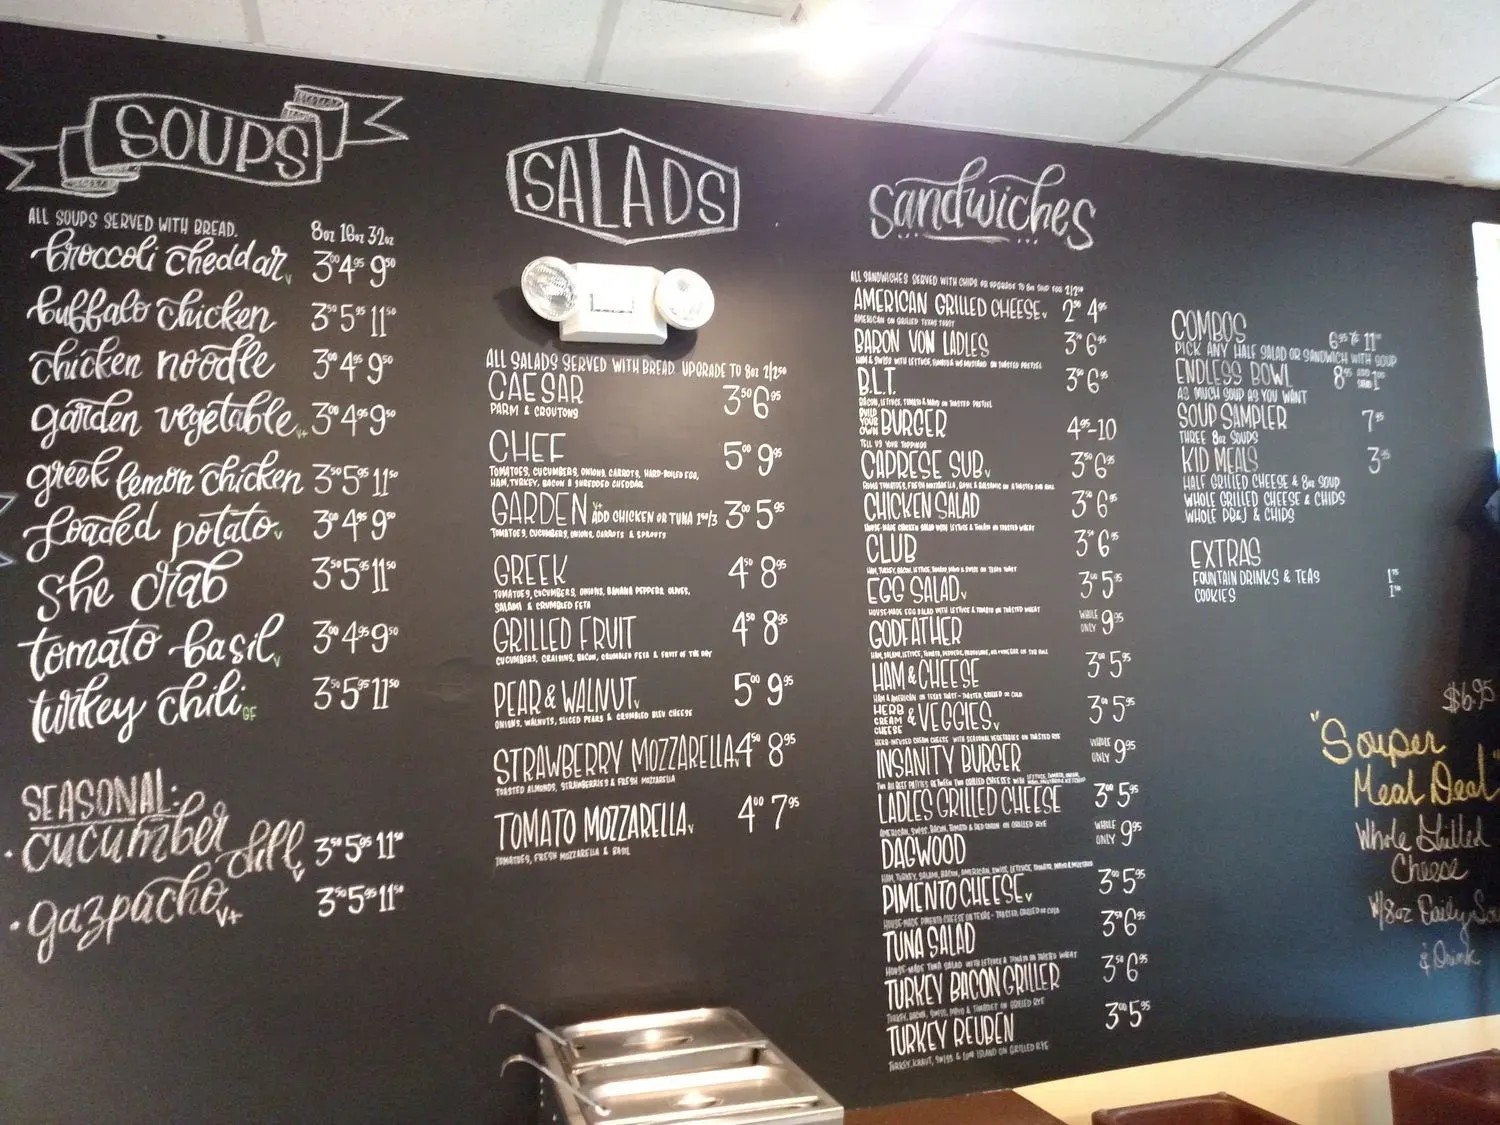 SOUPS
ALL SOUPS SERVED WITH BREAD. 8oz 16oz 32oz
broccoli cheddar V 3⁰⁰ 4⁹⁵ 9⁵⁰
buffalo chicken 3⁵⁰ 5⁹⁵ 11⁵⁰
chicken noodle 3⁰⁰ 4⁹⁵ 9⁵⁰
garden vegetable V+ 3⁰⁰ 4⁹⁵ 9⁵⁰
greek lemon chicken 3⁵⁰ 5⁹⁵ 11⁵⁰
loaded potato V 3⁰⁰ 4⁹⁵ 9⁵⁰
she crab 3⁵⁰ 5⁹⁵ 11⁵⁰
tomato basil V 3⁰⁰ 4⁹⁵ 9⁵⁰
turkey chili GF 3⁵⁰ 5⁹⁵ 11⁵⁰
SEASONAL:
· cucumber dill V 3⁵⁰ 5⁹⁵ 11⁵⁰
· gazpacho V+ 3⁵⁰ 5⁹⁵ 11⁵⁰
SALADS
ALL SALADS SERVED WITH BREAD. UPGRADE TO 8oz 2/2⁵⁰
CAESAR 3⁵⁰ 6⁹⁵
PARM & CROUTONS
CHEF 5⁰⁰ 9⁹⁵
TOMATOES, CUCUMBERS, ONIONS, CARROTS, HARD-BOILED EGG,
HAM, TURKEY, BACON & SHREDDED CHEDDAR
GARDEN V+ ADD CHICKEN OR TUNA 1⁵⁰/3 3⁰⁰ 5⁹⁵
TOMATOES, CUCUMBERS, ONIONS, CARROTS & SPROUTS
GREEK 4⁵⁰ 8⁹⁵
TOMATOES, CUCUMBERS, ONIONS, BANANA PEPPERS, OLIVES,
SALAMI & CRUMBLED FETA
GRILLED FRUIT 4⁵⁰ 8⁹⁵
CUCUMBERS, CRAISINS, BACON, CRUMBLED FETA & FRUIT OF THE DAY
PEAR & WALNUT V 5⁰⁰ 9⁹⁵
ONIONS, WALNUTS, SLICED PEARS & CRUMBLED BLEU CHEESE
STRAWBERRY MOZZARELLA V 4⁵⁰ 8⁹⁵
TOASTED ALMONDS, STRAWBERRIES & FRESH MOZZARELLA
TOMATO MOZZARELLA V 4⁰⁰ 7⁹⁵
TOMATOES, FRESH MOZZARELLA & BASIL
Sandwiches
ALL SANDWICHES SERVED WITH CHIPS OR UPGRADE TO 8oz SOUP FOR 2/2⁵⁰
AMERICAN GRILLED CHEESE V 2⁵⁰ 4⁹⁵
AMERICAN ON GRILLED TEXAS TOAST
BARON VON LADLES 3⁵⁰ 6⁹⁵
HAM & SWISS WITH LETTUCE, TOMATO & MUSTARD ON TOASTED PRETZEL
B.L.T. 3⁵⁰ 6⁹⁵
BACON, LETTUCE, TOMATO & MAYO ON TOASTED PRETZEL
BUILD YOUR OWN BURGER 4⁹⁵-10
TELL US YOUR TOPPINGS
CAPRESE SUB V 3⁵⁰ 6⁹⁵
ROMA TOMATOES, FRESH MOZZARELLA, BASIL & BALSAMIC ON A TOASTED SUB ROLL
CHICKEN SALAD 3⁵⁰ 6⁹⁵
HOUSE-MADE CHICKEN SALAD WITH LETTUCE & TOMATO ON TOASTED WHEAT
CLUB 3⁵⁰ 6⁹⁵
HAM, TURKEY, BACON, LETTUCE, TOMATO, MAYO & SWISS ON TEXAS TOAST
EGG SALAD V 3⁰⁰ 5⁹⁵
HOUSE-MADE EGG SALAD WITH LETTUCE & TOMATO ON TOASTED WHEAT
GODFATHER WHOLE ONLY 9⁹⁵
HAM, SALAMI, LETTUCE, TOMATO, PEPPERS, PROVOLONE, OIL & VINEGAR ON SUB ROLL
HAM & CHEESE 3⁰⁰ 5⁹⁵
HAM & AMERICAN ON TEXAS TOAST - TOASTED, GRILLED OR COLD
HERB CREAM CHEESE & VEGGIES V 3⁰⁰ 5⁹⁵
HERB-INFUSED CREAM CHEESE WITH SEASONAL VEGETABLES ON TOASTED RYE
INSANITY BURGER WHOLE ONLY 9⁹⁵
TWO ALL BEEF PATTIES BETWEEN TWO GRILLED CHEESES WITH LETTUCE, TOMATO, ONION,
LADLES GRILLED CHEESE 3⁰⁰ 5⁹⁵
AMERICAN, SWISS, BACON, TOMATO & RED ONION ON GRILLED RYE
DAGWOOD WHOLE ONLY 9⁹⁵
HAM, TURKEY, SALAMI, BACON, AMERICAN, SWISS, LETTUCE, TOMATO, MAYO & MUSTARD
PIMENTO CHEESE V 3⁰⁰ 5⁹⁵
HOUSE-MADE PIMENTO CHEESE ON TEXAS - TOASTED, GRILLED OR COLD
TUNA SALAD 3⁵⁰ 6⁹⁵
HOUSE-MADE TUNA SALAD WITH LETTUCE & TOMATO ON TOASTED WHEAT
TURKEY BACON GRILLER 3⁵⁰ 6⁹⁵
TURKEY, BACON, SWISS, MAYO & TOMATOES ON GRILLED RYE
TURKEY REUBEN 3⁰⁰ 5⁹⁵
TURKEY, KRAUT, SWISS & 1000 ISLAND ON GRILLED RYE
COMBOS 6⁹⁵ to 11⁹⁵
PICK ANY HALF SALAD OR SANDWICH WITH SOUP
ENDLESS BOWL 8⁹⁵ ADD SALAD 1⁰⁰
AS MUCH SOUP AS YOU WANT
SOUP SAMPLER 7⁹⁵
THREE 8oz SOUPS
KID MEALS 3⁹⁵
HALF GRILLED CHEESE & 8oz SOUP
WHOLE GRILLED CHEESE & CHIPS
WHOLE PB&J & CHIPS
EXTRAS
FOUNTAIN DRINKS & TEAS 1⁷⁵
COOKIES 1⁵⁰
$6.95
"Souper
Meal Deal"
Whole Grilled
Cheese
W/8oz Daily Sou
& Drink